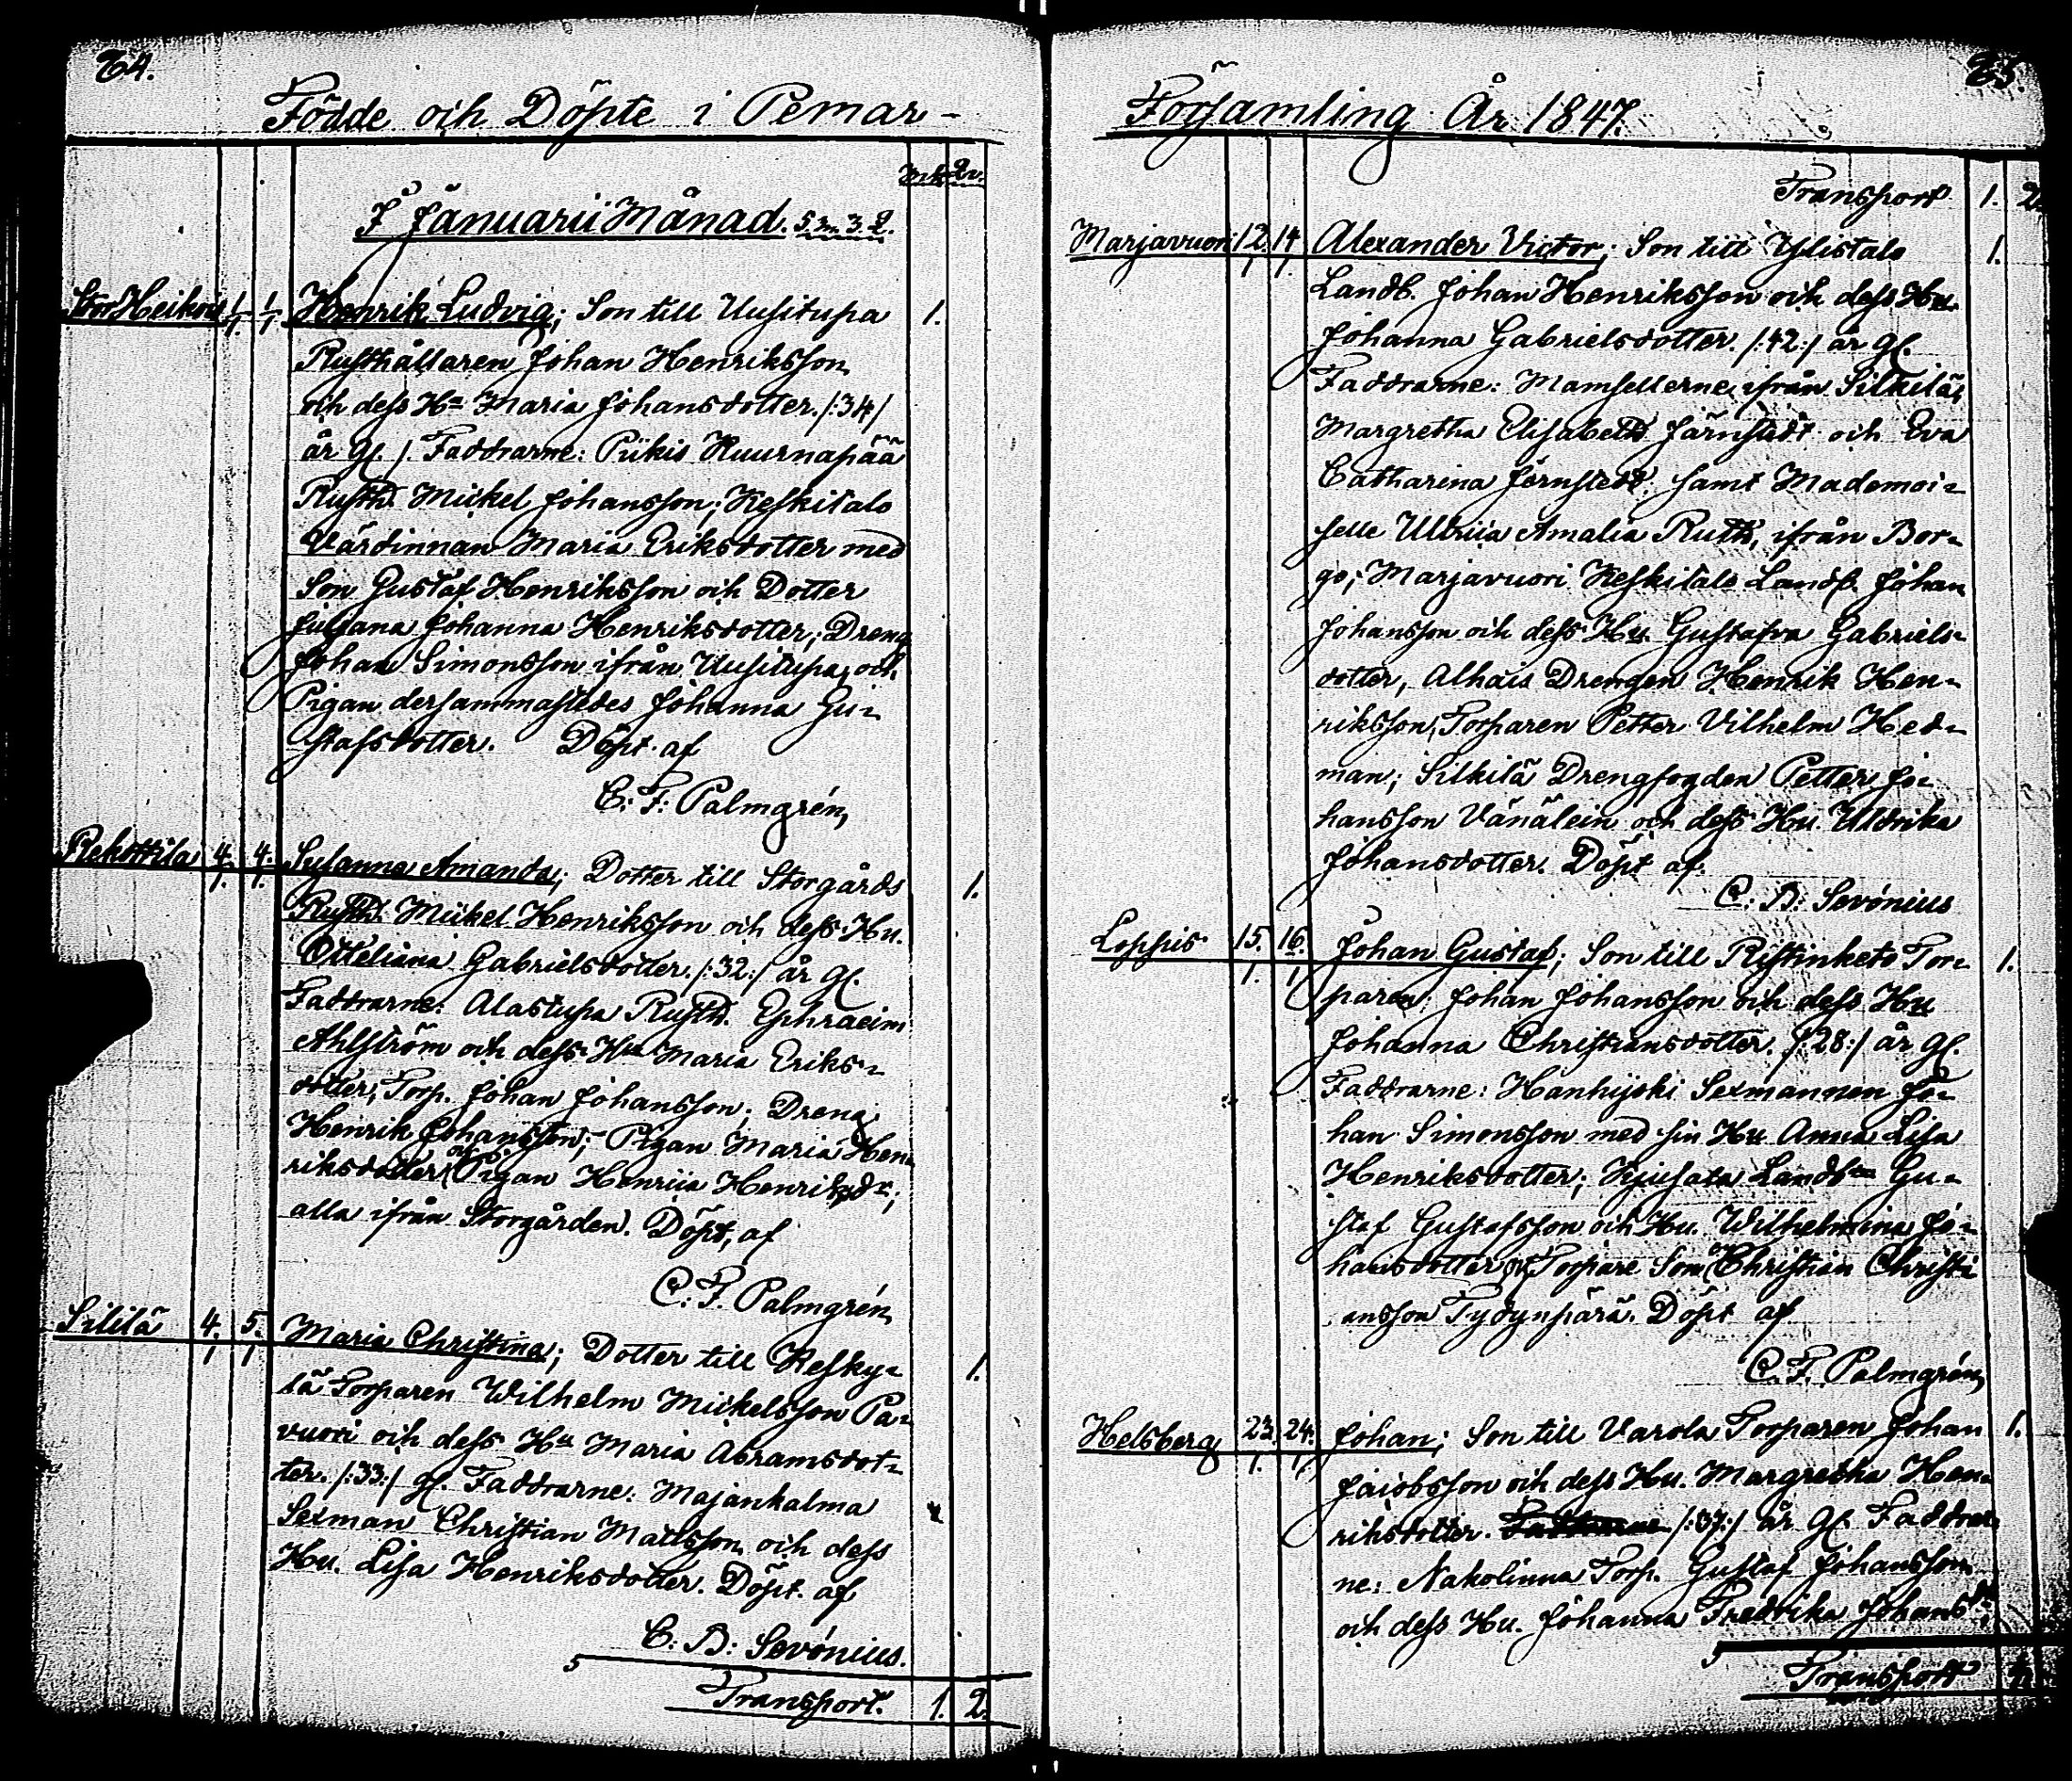 64.
Födde och Döpte i Pemar-
Mk. Qv.
I Januarii Månad. 5 m. 3. 2.
Stor Heikois 1/1 1/1 Henrik Ludvig; Son till Uusitupa 1.
Rusthållaren Johan Henriksson
och dess Hu Maria Johansdotter. /:34/
år gl. /. Faddrarne: Piikis Kuurnapää
Rusth. Mickel Johansson; Keskitalo
Värdinnan Maria Eriksdotter med
Son Gustaf Henriksson och Dotter
Juliana Johanna Henriksdotter; Dreng
Johan Simonsson ifrån Uusitupa, och
Pigan dersammastedes Johanna Gu-
stafsdotter. Döpt af
C: F: Palmgrén,
Rekottila 4./1. 4./1. Susanna Amanda; Dotter till Storgårds 1.
Rusth. Mickel Henriksson och dess Hu.
Otteliana Gabrielsdotter. /:32:/ år gl.
Faddrarne: Alastupa Rusth. Ephraeim
Ahlström och dess Hu Maria Eriks-
dotter, Torp. Johan Johansson; Dreng
Henrik Johansson; Pigan Maria Hen-
riksdotter och Pigan Henrica Henriksdr;
alla ifrån Storgården. Döpt, af
C. F. Palmgrén
Sililä 4./1 5./1 Maria Christina; Dotter till Kesky- 1.
lä Torparen Wilhelm Mickelsson Pa-
vuori och dess Hu Maria Abramsdot-
ter. /:33:/ gl. Faddrarne: Majankalma
Sexman Christian Mattsson och dess
Hu. Lisa Henriksdotter. Döpt. af
C: B: Sevónius.
Transport. 1. 2.
65.
Församling År 1847.
Transport 1. 2.
Marjavuori 12./1 14/1. Alexander Victor; Son till Ylistalo 1.
Landb. Johan Henriksson och dess Hu
Johanna Gabrielsdotter. /:42:/ år gl.
Faddrarne: Mamsellerne ifrån Silkilä,
Margretha Elisabeth Järnstedt och Eva
Catharina Jernstedt samt Mademoi-
selle Ulrica Amalia Ruth, ifrån Bor-
go; Marjavuori Keskitalo Landb. Johan
Johansson och dess Hu Gustafva Gabriels-
dotter, Alhais Drengen Henrik Hen-
riksson, Torparen Petter Vilhelm Hed-
man; Silkilä Drengfogden Petter Jo-
hansson Vänälein och dess Hu. Uldrika
Johansdotter. Döpt af.
C: B: Sevónius
Loppis 15./1. 16./1 Johan Gustaf; Son till Ristinketo Tor- 1.
paren Johan Johansson och dess Hu
Johanna Christiansdotter. /:28:/ år gl.
Faddrarne: Hanhijoki Sexmannen Jo-
han Simonsson med sin Hu Anna Lisa
Henriksdotter; Kjusala Landb. Gu-
staf Gustafsson och Hu. Wilhelmina Jo-
hansdotter Torpare Son Christian Christi
ansson Tydynpärä. Döpt af
C. F. Palmgrén,
Helsberg 23./1. 24./1. Johan; Son till Varola Torparen Johan 1.
Jacobsson och dess Hu. Margretha Hen-
riksdotter. Faddrarne /:37:/ år gl. Faddrar-
ne: Nakolinna Torp. Gustaf Johansson
och dess Hu. Johanna Fredrika Johansdr
Transport